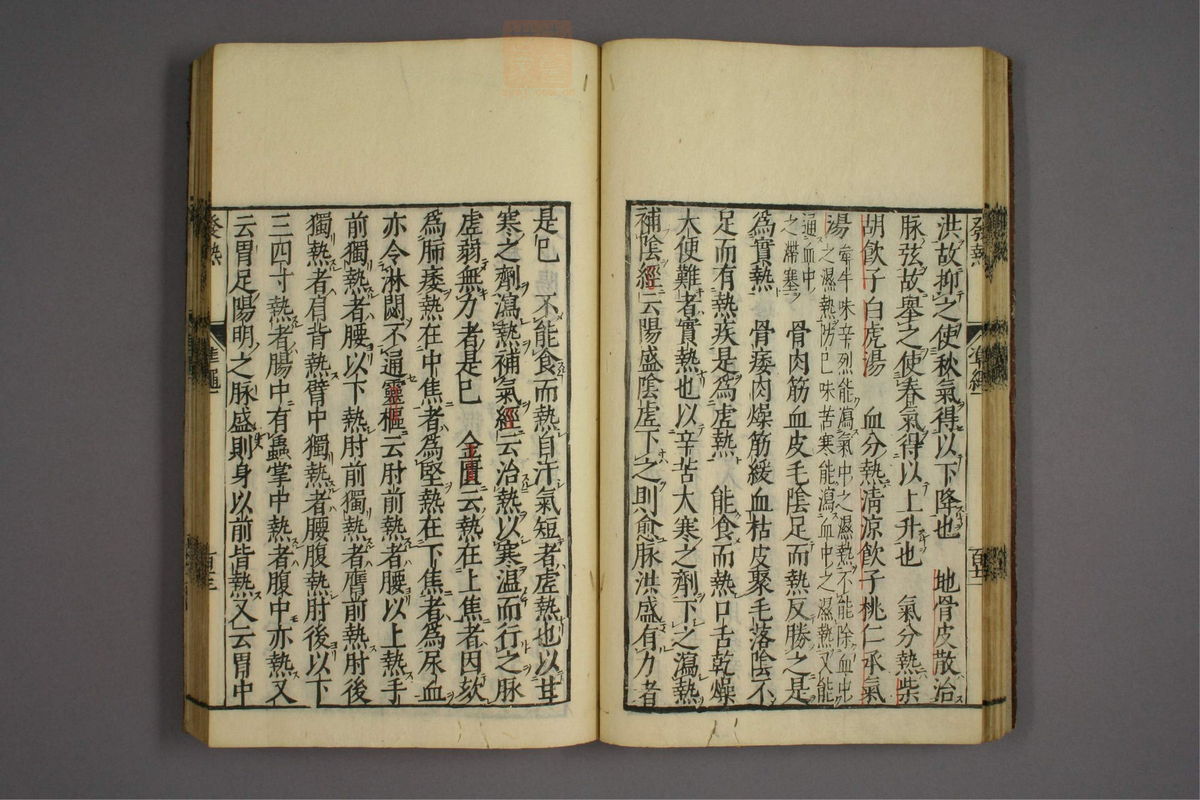 洪故抑之使秋氣得以下降也　地骨皮散治
脉弦故舉之使春氣得以上升也　氣分熱柴
胡飲子白虎湯　血分熱清涼飲子桃仁承氣
湯　牽牛味辛烈能瀉氣中之濕熱不能除血中
之濕熱防巳味苦寒能瀉血中之濕熱又能
通血中
之滯塞　骨肉筋血皮毛陰足而熱反勝之是
爲實熱　骨痿肉燥筋緩血枯皮聚毛落陰不
足而有熱疾是爲虛熱　能食而熱口舌乾燥
大便難者實熱也以辛苦大寒之劑下之瀉熱
補陰經云陽盛陰虛下之則愈脉洪盛有力者
是巳　不能食而熱自汗氣短者虛熱也以甘
寒之劑瀉熱補氣經云治熱以寒温而行之脉
虛弱無力者是巳　金匱云熱在上焦者因欬
爲肺痿熱在中焦者爲堅熱在下焦者爲尿血
亦令淋閟不通靈樞云肘前熱者腰以上熱手
前獨熱者腰以下熱肘前獨熱者膺前熱肘後
獨熱者肩背熱臂中獨熱者腰腹熱肘後以下
三四寸熱者腸中有蟲掌中熱者腹中亦熱又
云胃足陽明之脉盛則身以前皆熱又云胃中
發熱
準繩一